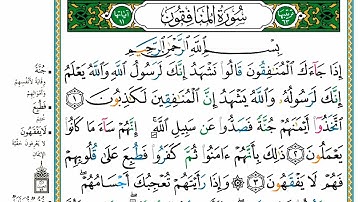 سُورَةُ المُنَافِقُونَ
بِسْمِ اللَّهِ الرَّحْمَٰنِ الرَّحِيمِ
إِذَا جَآءَكَ ٱلْمُنَٰفِقُونَ قَالُوا۟ نَشْهَدُ إِنَّكَ لَرَسُولُ ٱللَّهِ وَٱللَّهُ يَعْلَمُ
إِنَّكَ لَرَسُولُهُۥ وَٱللَّهُ يَشْهَدُ إِنَّ ٱلْمُنَٰفِقِينَ لَكَٰذِبُونَ ١
ٱتَّخَذُوٓا۟ أَيْمَٰنَهُمْ جُنَّةً فَصَدُّوا۟ عَن سَبِيلِ ٱللَّهِ إِنَّهُمْ سَآءَ مَا كَانُوا۟
يَعْمَلُونَ ٢ ذَٰلِكَ بِأَنَّهُمْ ءَامَنُوا۟ ثُمَّ كَفَرُوا۟ فَطُبِعَ عَلَىٰ قُلُوبِهِمْ
فَهُمْ لَا يَفْقَهُونَ ٣ وَإِذَا رَأَيْتَهُمْ تُعْجِبُكَ أَجْسَامُهُمْ
جُنَّةً
فَطُبِعَ
لَا يَفْقَهُونَ